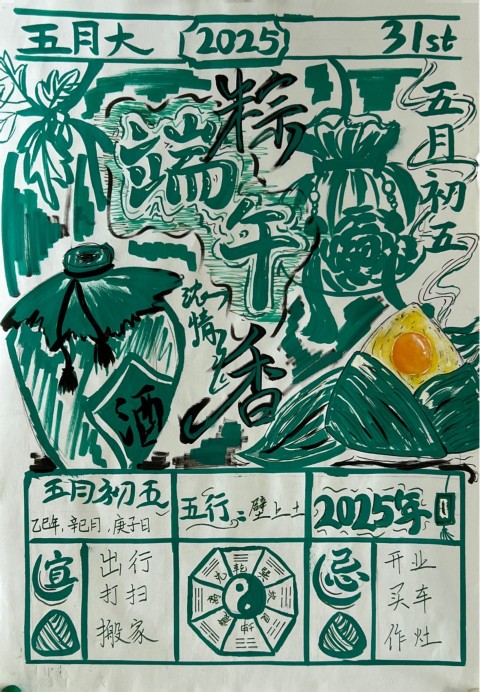 五月大 2025 31st
五月初五
端午
粽香
浓情
酒
五月初五
乙巳年，辛巳月，庚子日
五行：壁上土
2025年
宜
出行
打扫
搬家
忌
开业
买车
作灶